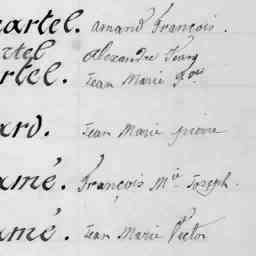 artel. Armand François.
artel Alexandre Jean
rtel. Jean Marie
ard. Jean Marie pierre
amé. François M^ie Joseph.
amé. Jean Marie Victor